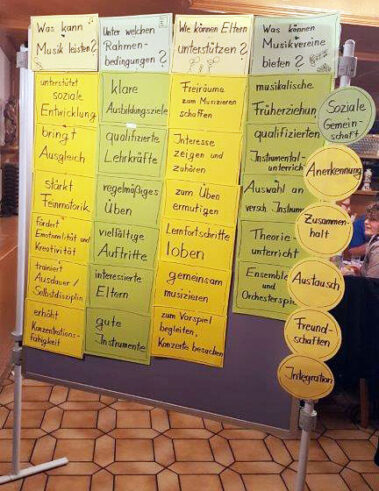 Was kann
Musik leisten?
unterstützt
soziale
Entwicklung
bringt
Ausgleich
stärkt
Feinmotorik
fördert
Emotionalität und
Kreativität
trainiert
Ausdauer /
Selbstdisziplin
erhöht
Konzentrations-
fähigkeit
Unter welchen
Rahmen-
bedingungen?
klare
Ausbildungsziele
qualifizierte
Lehrkräfte
regelmäßiges
Üben
vielfältige
Auftritte
interessierte
Eltern
gute
Instrumente
Wie können Eltern
unterstützen?
Freiräume
zum Musizieren
schaffen
Interesse
zeigen und
zuhören
zum Üben
ermutigen
Lernfortschritte
loben
gemeinsam
musizieren
zum Vorspiel
begleiten,
Konzerte besuchen
Was können
Musikvereine
bieten?
musikalische
Früherziehung
qualifizierten
Instrumental-
unterricht
Auswahl an
versch. Instrum
Theorie-
unterricht
Ensemble
und
Orchesterspi
Soziale
Gemein-
schaft
Anerkennung
Zusammen-
halt
Austausch
Freund-
schaften
Integration